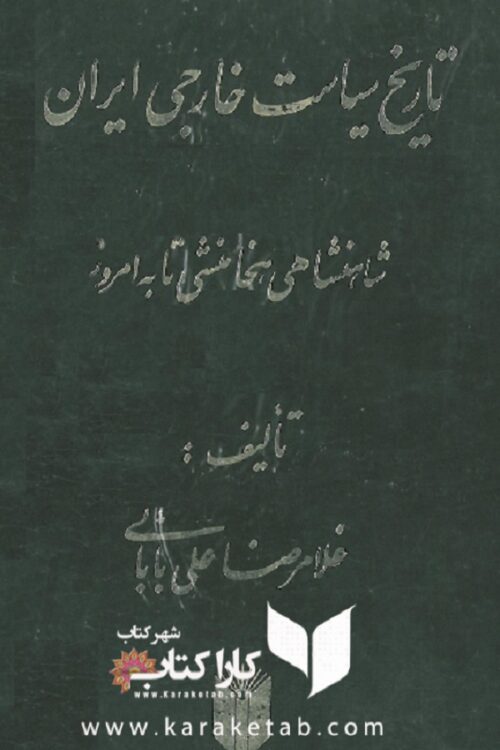 تاریخ سیاست خارجی ایران
شاهنشاهی هخامنشی تا به امروز
تألیف :
غلامرضا علی بابایی
شهر کتاب
کارا کتاب
www.Karaketab.com
www.karaketab.com